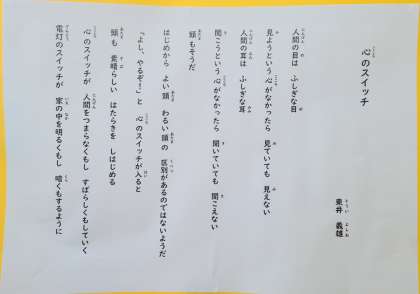 心のスイッチ
東井 義雄
人間の目は ふしぎな目
見ようという 心がなかったら 見ていても 見えない
人間の耳は ふしぎな耳
聞こうという 心がなかったら 聞いていても 聞こえない
頭もそうだ
はじめから よい頭 わるい頭の 区別があるのではないようだ
「よし、やるぞ!」と 心のスイッチが入ると
頭も 素晴らしい はたらきを しはじめる
心のスイッチが 人間をつまらなくもし すばらしくもしていく
電灯のスイッチが 家の中を明るくもし 暗くもするように